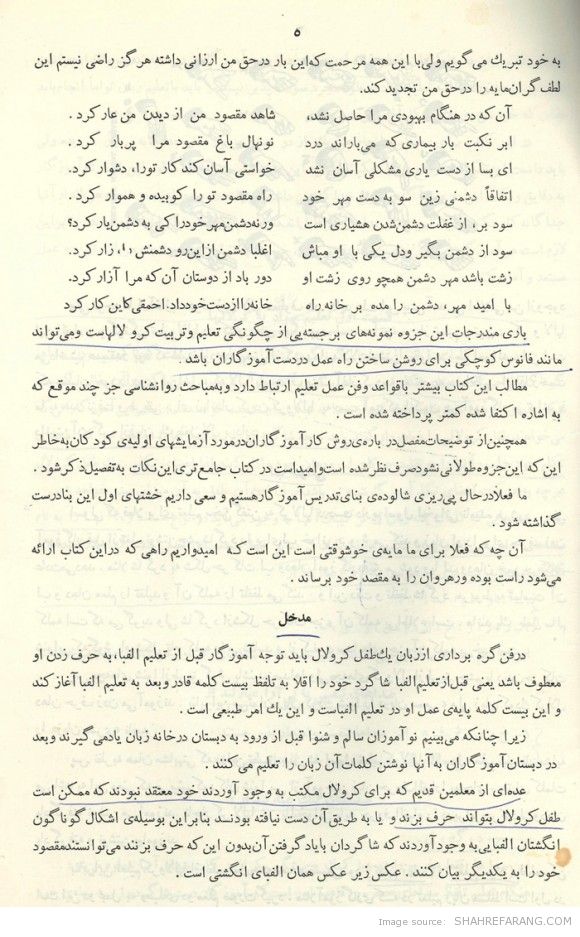 ۵
به خود تبریك می گویم ولی با این همه مرحمت که این بار درحق من ارزانی داشته هرگز راضی نیستم این
لطف گران مایه را درحق من تجدید کند.
آن که در هنگام بهبودی مرا حاصل نشد، شاهد مقصود من از دیدن من عار کرد.
ابر نکبت بار بیماری که می باراند درد نونهال باغ مقصود مرا پربار کرد.
ای بسا از دست یاری مشکلی آسان نشد خواستی آسان کند کار تورا، دشوار کرد.
اتفاقاً دشمنی زین سو به دست مهر خود راه مقصود تو را کوبیده و هموار کرد.
سود بر، از غفلت دشمن شدن هشیاری است ورنه دشمن مهر خود را کی به دشمن یار کرد؟
سود از دشمن بگیر ودل یکی با او مباش اغلبا دشمن از این رو دشمنش را، زار کرد.
زشت باشد مهر دشمن همچو روی زشت او دور باد از دوستان آن که مرا آزار کرد.
با امید مهر، دشمن را مده بر خانه راه خانه را از دست خود داد. احمقی کاین کار کرد
باری مندرجات این جزوه نمونه های برجسته یی از چگونگی تعلیم و تربیت کرو لالهاست ومی تواند
مانند فانوس کوچکی برای روشن ساختن راه عمل دردست آموزگاران باشد.
مطالب این کتاب بیشتر با قواعد وفن عمل تعلیم ارتباط دارد وبه مباحث روانشناسی جز چند موقع که
به اشاره اکتفا شده کمتر پرداخته شده است.
همچنین از توضیحات مفصل در باره ی روش کار آموزگاران درمورد آزمایشهای اولیه ی کودکان به خاطر
این که این جزوه طولانی نشود صرف نظر شده است وامید است در کتاب جامع تری این نکات به تفصیل ذکر شود.
ما فعلا درحال پی ریزی شالوده ی بنای تدریس آموزگار هستیم و سعی داریم خشتهای اول این بنا درست
گذاشته شود.
آن چه که فعلا برای ما مایه ی خوشوقتی است این است که امیدواریم راهی که دراین کتاب ارائه
می شود راست بوده ورهروان را به مقصد خود برساند.
مدخل
درفن گره برداری از زبان یك طفل کرولال باید توجه آموزگار قبل از تعلیم الفبا، به حرف زدن او
معطوف باشد یعنی قبل از تعلیم الفبا شاگرد خود را اقلا به تلفظ بیست کلمه قادر وبعد به تعلیم الفبا آغاز کند
و این بیست کلمه پایه ی عمل او در تعلیم الفباست و این یك امر طبیعی است.
زیرا چنانکه می بینیم نوآموزان سالم و شنوا قبل از ورود به دبستان درخانه زبان یادمی گیرند وبعد
در دبستان آموزگاران به آنها نوشتن کلمات آن زبان را تعلیم می کنند.
عده ای از معلمین قدیم که برای کرولال مکتب به وجود آوردند خود معتقد نبودند که ممکن است
طفل کرولال بتواند حرف بزند و یا به طریق آن دست نیافته بودند بنا براین بوسیله ی اشکال گوناگون
انگشتان الفبایی به وجود آوردند که شاگردان با یاد گرفتن آن بدون این که حرف بزنند می توانستند مقصود
خود را به یکدیگر بیان کنند. عکس زیر عکس همان الفبای انگشتی است.
Image source: SHAHREFARANG.COM